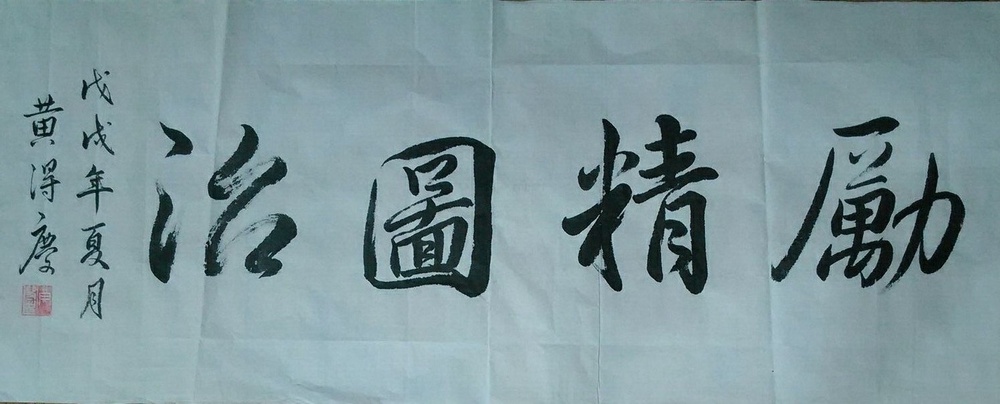 勵精圖治
戊戌年夏月
黄得慶